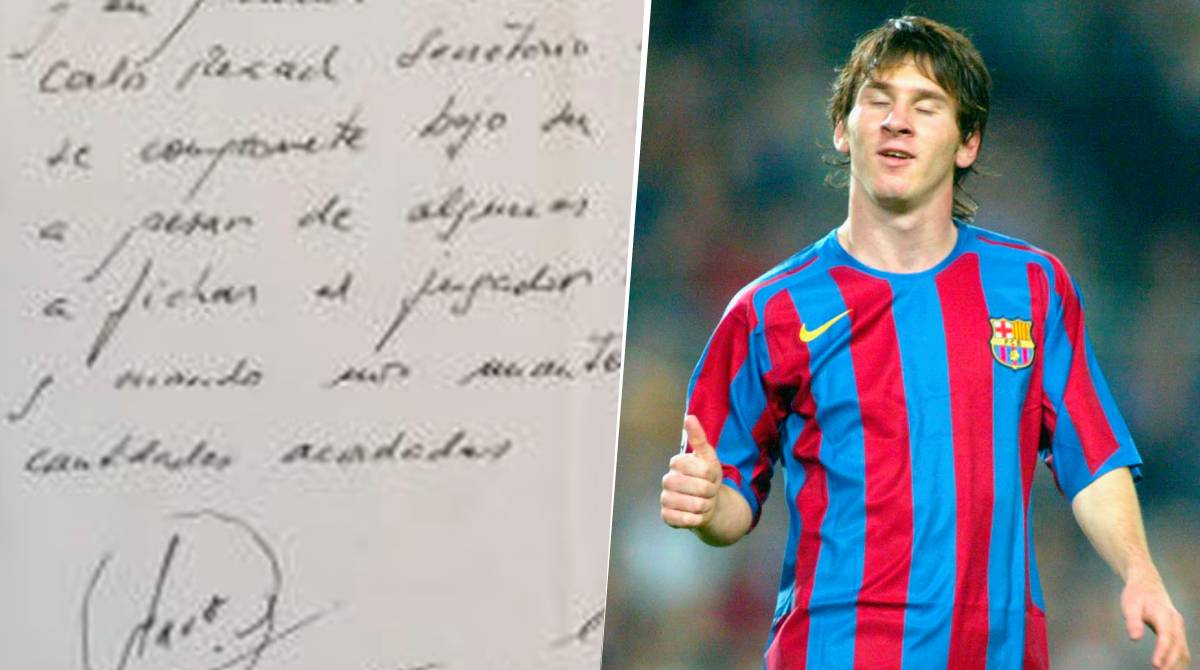 y en presen
Carlos Rexach Secretario
se compromete bajo su
a pesar de algunas
a fichar al jugador
y cuando nos mante
cantidades acordadas